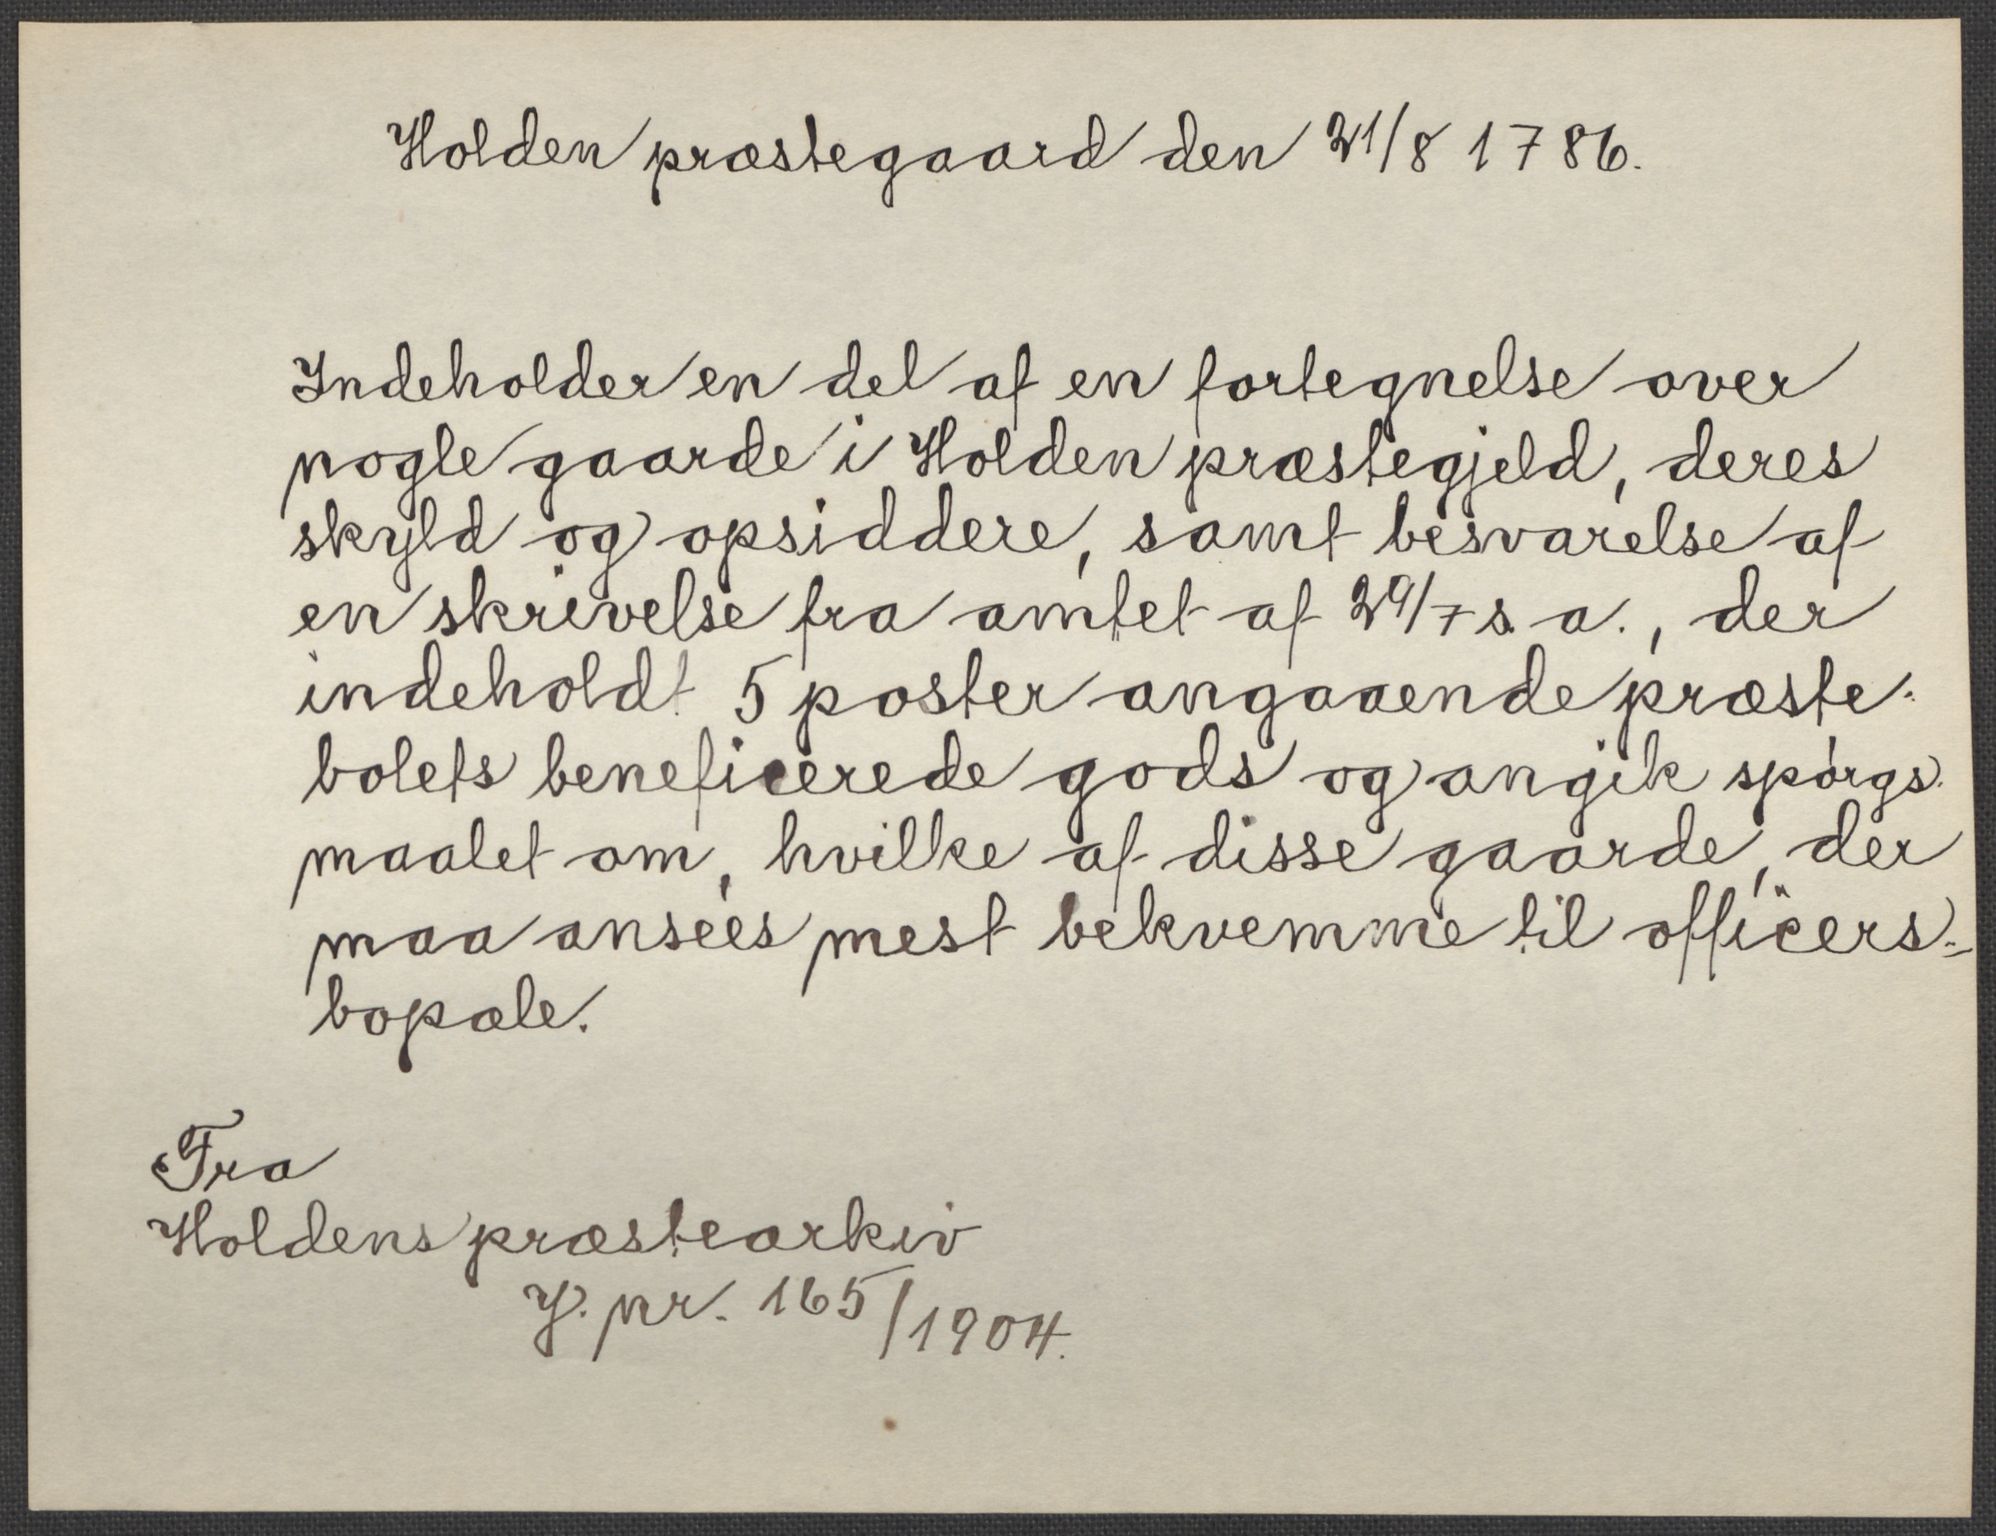 Holden præstegaard den 21/8 1786.
Indeholder en del af en fortegnelse over
nogle gaarde i Holden præstegjeld, deres
skyld og opsiddere, samt besvarelse af
en skrivelse fra amtet af 29/7 s. a., der
indeholdt 5 poster angaaende præste-
bolets beneficerede gods og angik spørgs-
maalet om, hvilke af disse gaarde, der
maa ansees mest bekvemme til officers-
bopæle.
Fra
Holdens præstearkiv
J. nr. 165/1904.